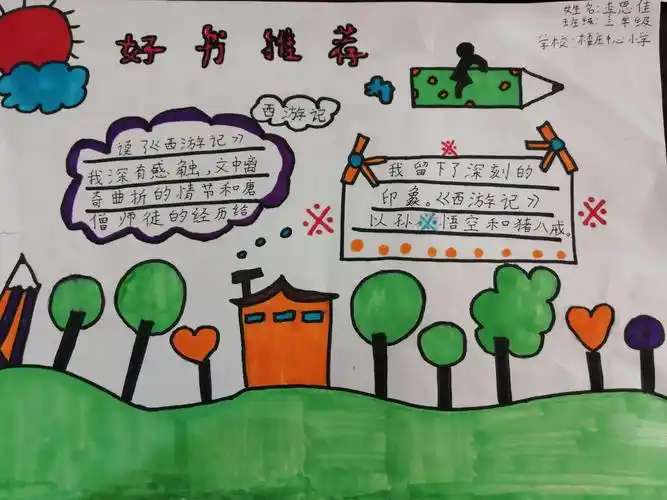 姓名:李思佳
班级:三年级
学校:楼庄中心小学
好书推荐
西游记
读了《西游记》
我深有感触,文中离
奇曲折的情节和唐
僧师徒的经历给
我留下了深刻的
印象。《西游记》
以孙悟空和猪八戒。